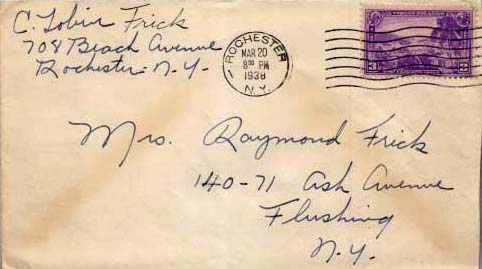 C. Tobin Frick
708 Beach Avenue
Rochester N.Y.
ROCHESTER
MAR 20
8 PM
1938
N.Y.
VIRGIN ISLANDS
3 3
Mrs. Raymond Frick
140-71 Ash Avenue
Flushing
N.Y.